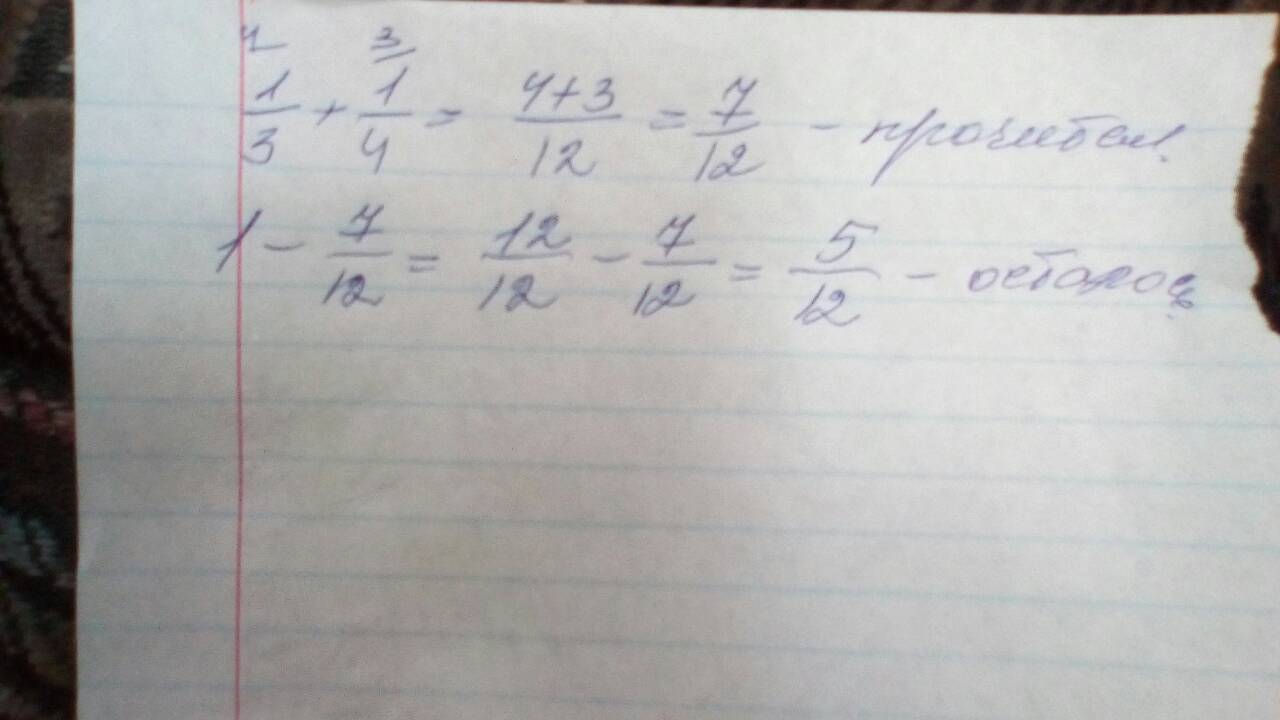 4 3
1/3 + 1/4 = 4+3/12 = 7/12 - прочитал.
1 - 7/12 = 12/12 - 7/12 = 5/12 - осталось